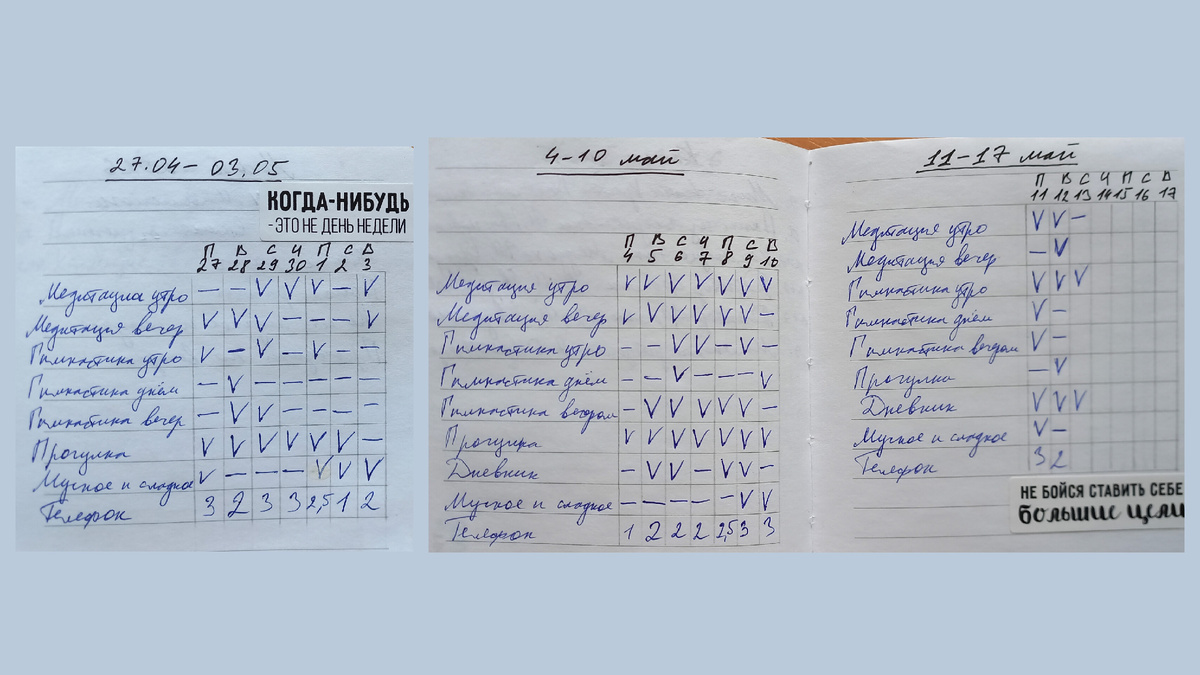 27.04 – 03.05
КОГДА-НИБУДЬ
- ЭТО НЕ ДЕНЬ НЕДЕЛИ
П В С Ч П С В
27 28 29 30 1 2 3
Медитация утро — — V V V — V
Медитация вечер V V V — — — V
Гимнастика утро V — V — V — —
Гимнастика днём — V — — — — —
Гимнастика вечер — V V — — — —
Прогулка V V V V V V —
Мучное и сладкое V — — — V V V
Телефон 3 2 3 3 2,5 1 2
4 – 10 май
П В С Ч П С В
4 5 6 7 8 9 10
Медитация утро V V V V V V V
Медитация вечер V V V V V V —
Гимнастика утро — — V V — V —
Гимнастика днём — — V — — — V
Гимнастика вечером — V V V V V —
Прогулка V V V V V V V
Дневник — V V — V V —
Мучное и сладкое — — — — — V V
Телефон 1 2 2 2 2,5 3 3
11 – 17 май
П В С Ч П С В
11 12 13 14 15 16 17
Медитация утро V V —
Медитация вечер — V
Гимнастика утро V V V
Гимнастика днём V —
Гимнастика вечером V —
Прогулка — V
Дневник V V V
Мучное и сладкое V —
Телефон 3 2
НЕ БОЙСЯ СТАВИТЬ СЕБЕ
большие цели